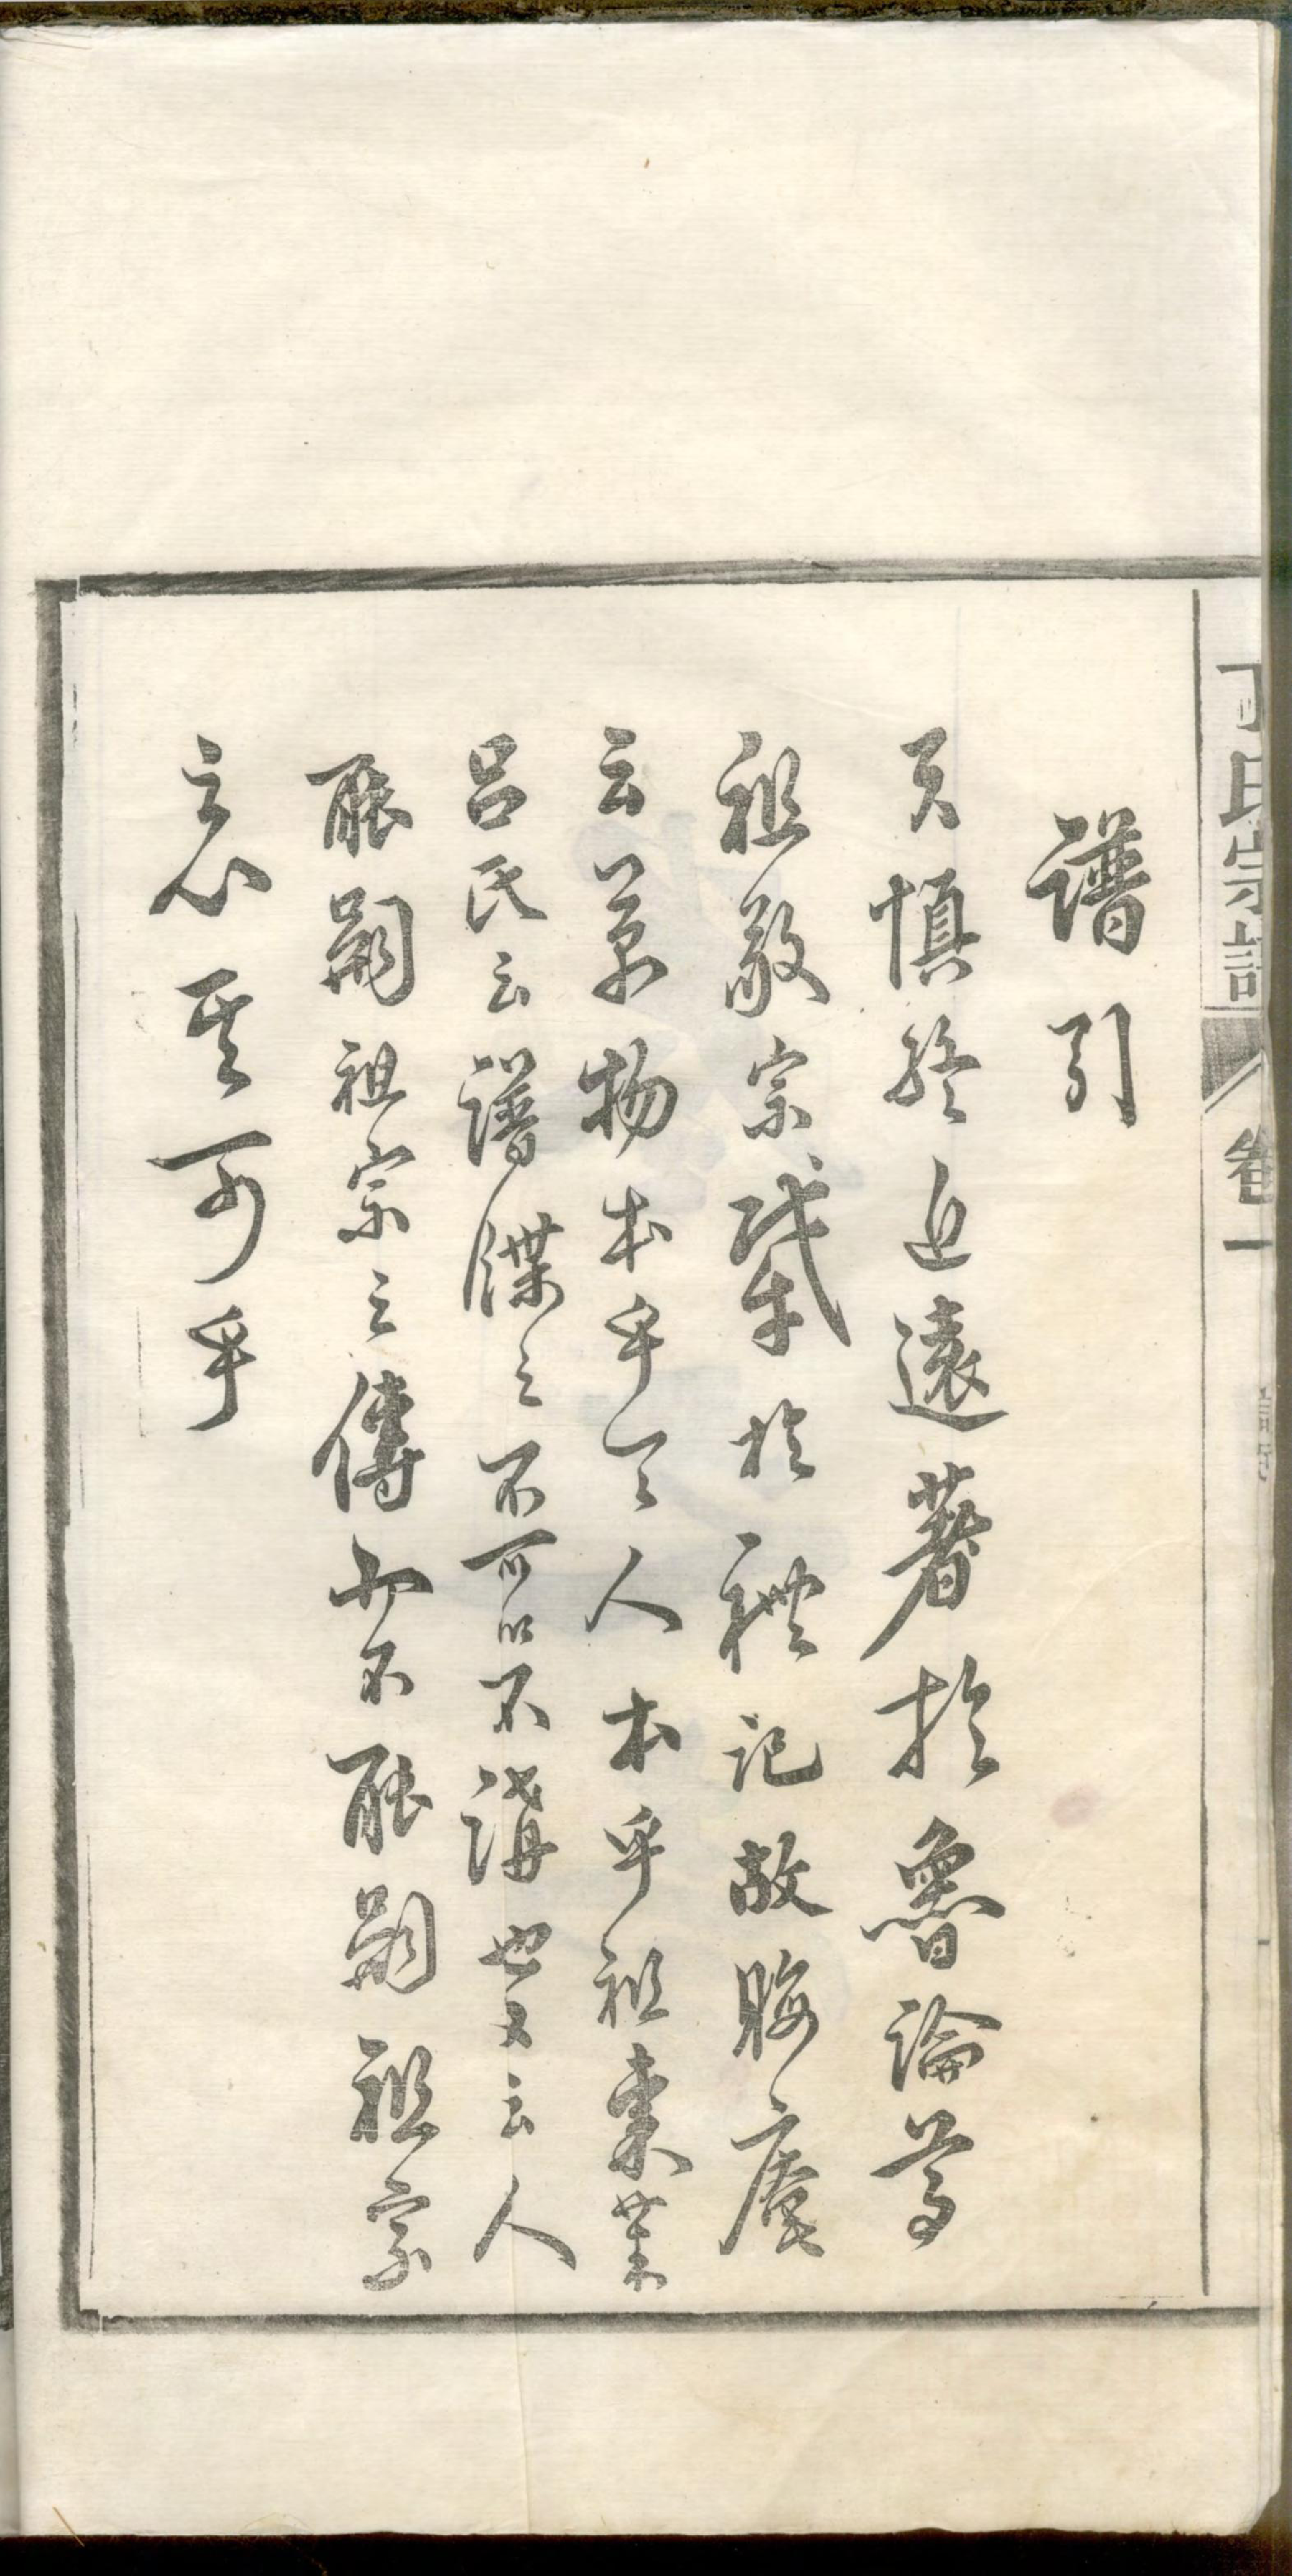 丁氏宗譜 卷一
譜引
夫慎終追遠著於魯論尊
祖敬宗肇於禮記故晦庵
云萬物本乎天人本乎祖東萊
呂氏云譜牒之不可以不講也又云人
能嗣祖宗之傳而不能嗣祖宗
之心其可乎